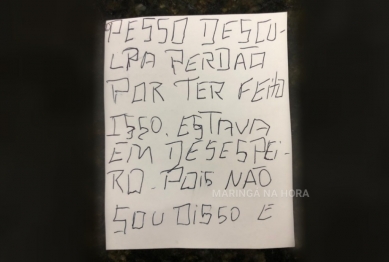 PESSO DESCU-
LPA PERDÃO
POR TER FEITO
ISSO. ESTAVA
EM DESESPEI-
RO. POIS NÃO
SOU DISSO E
MARINGÁ NA HORA